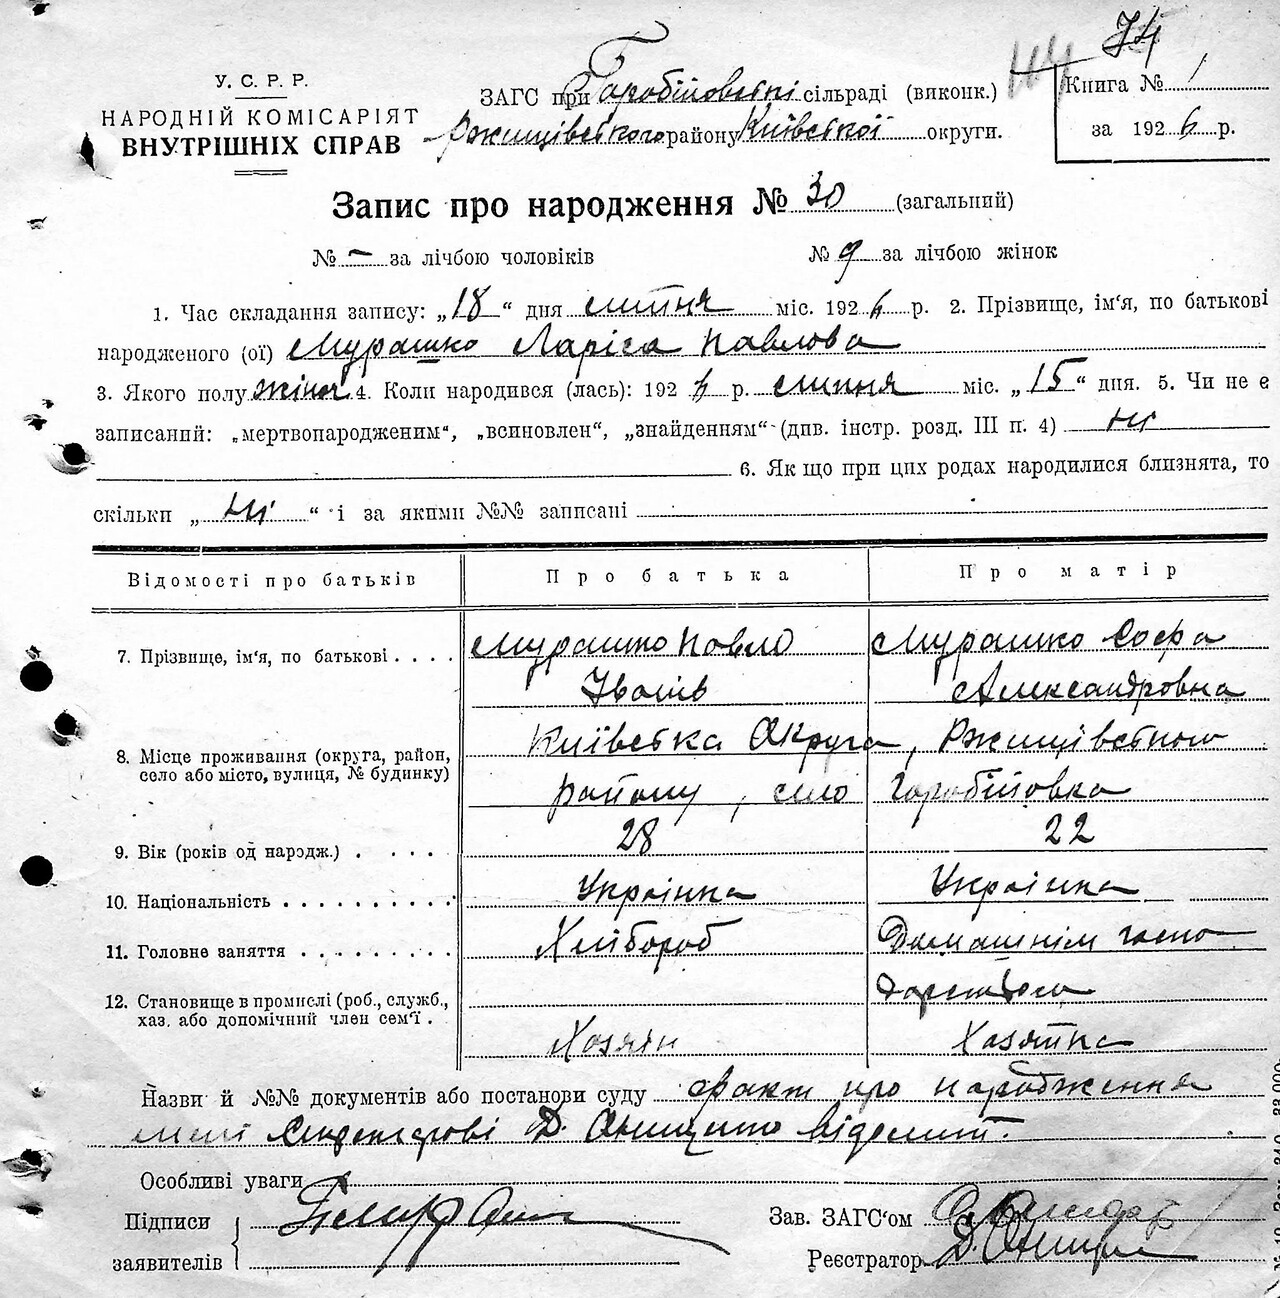 74
У. С. Р. Р.
НАРОДНІЙ КОМІСАРІЯТ
ВНУТРІШНІХ СПРАВ
ЗАГС при Горобіївській сільраді (виконк.)
Ржищівського району Київської округи.
Книга № 1
за 1926 р.
Запис про народження № 30 (загальний)
№ – за лічбою чоловіків № 9 за лічбою жінок
1. Час складання запису: „18“ дня липня міс. 1926 р. 2. Прізвище, ім'я, по батькові
народженого (ої) Мурашко Ларіса Павлова
3. Якого полу жіноч. 4. Коли народився (лась): 1926 р. липня міс. „15“ дня. 5. Чи не є
записаний: „мертвонародженим“, „всиновлен“, „знайденням“ (див. інстр. розд. III п. 4) ні
6. Як що при цих родах народилися близнята, то
скільки „ні“ і за якими №№ записані
Відомості про батьків Про батька Про матір
7. Прізвище, ім'я, по батькові . . . . Мурашко Павло Мурашко Софа
Іванів Александровна
8. Місце проживання (округа, район, село або місто, вулиця, № будинку) Київська Округа, Ржищівського
району, село Горобіївка
9. Вік (років од народж.) . . . . 28 22
10. Національність . . . . . . . . . . Українка Українка
11. Головне заняття . . . . . . . . Хлібороб Домашнім госпо
дарством
12. Становище в промислі (роб., служб., хаз. або допомічний член сем'ї . Хозяін Хозяйка
Назви й №№ документів або постанови суду Факт про народження
мені Д. Онищенко
Особливі уваги
Підписи
заявителів
Зав. ЗАГС'ом
Реєстратор